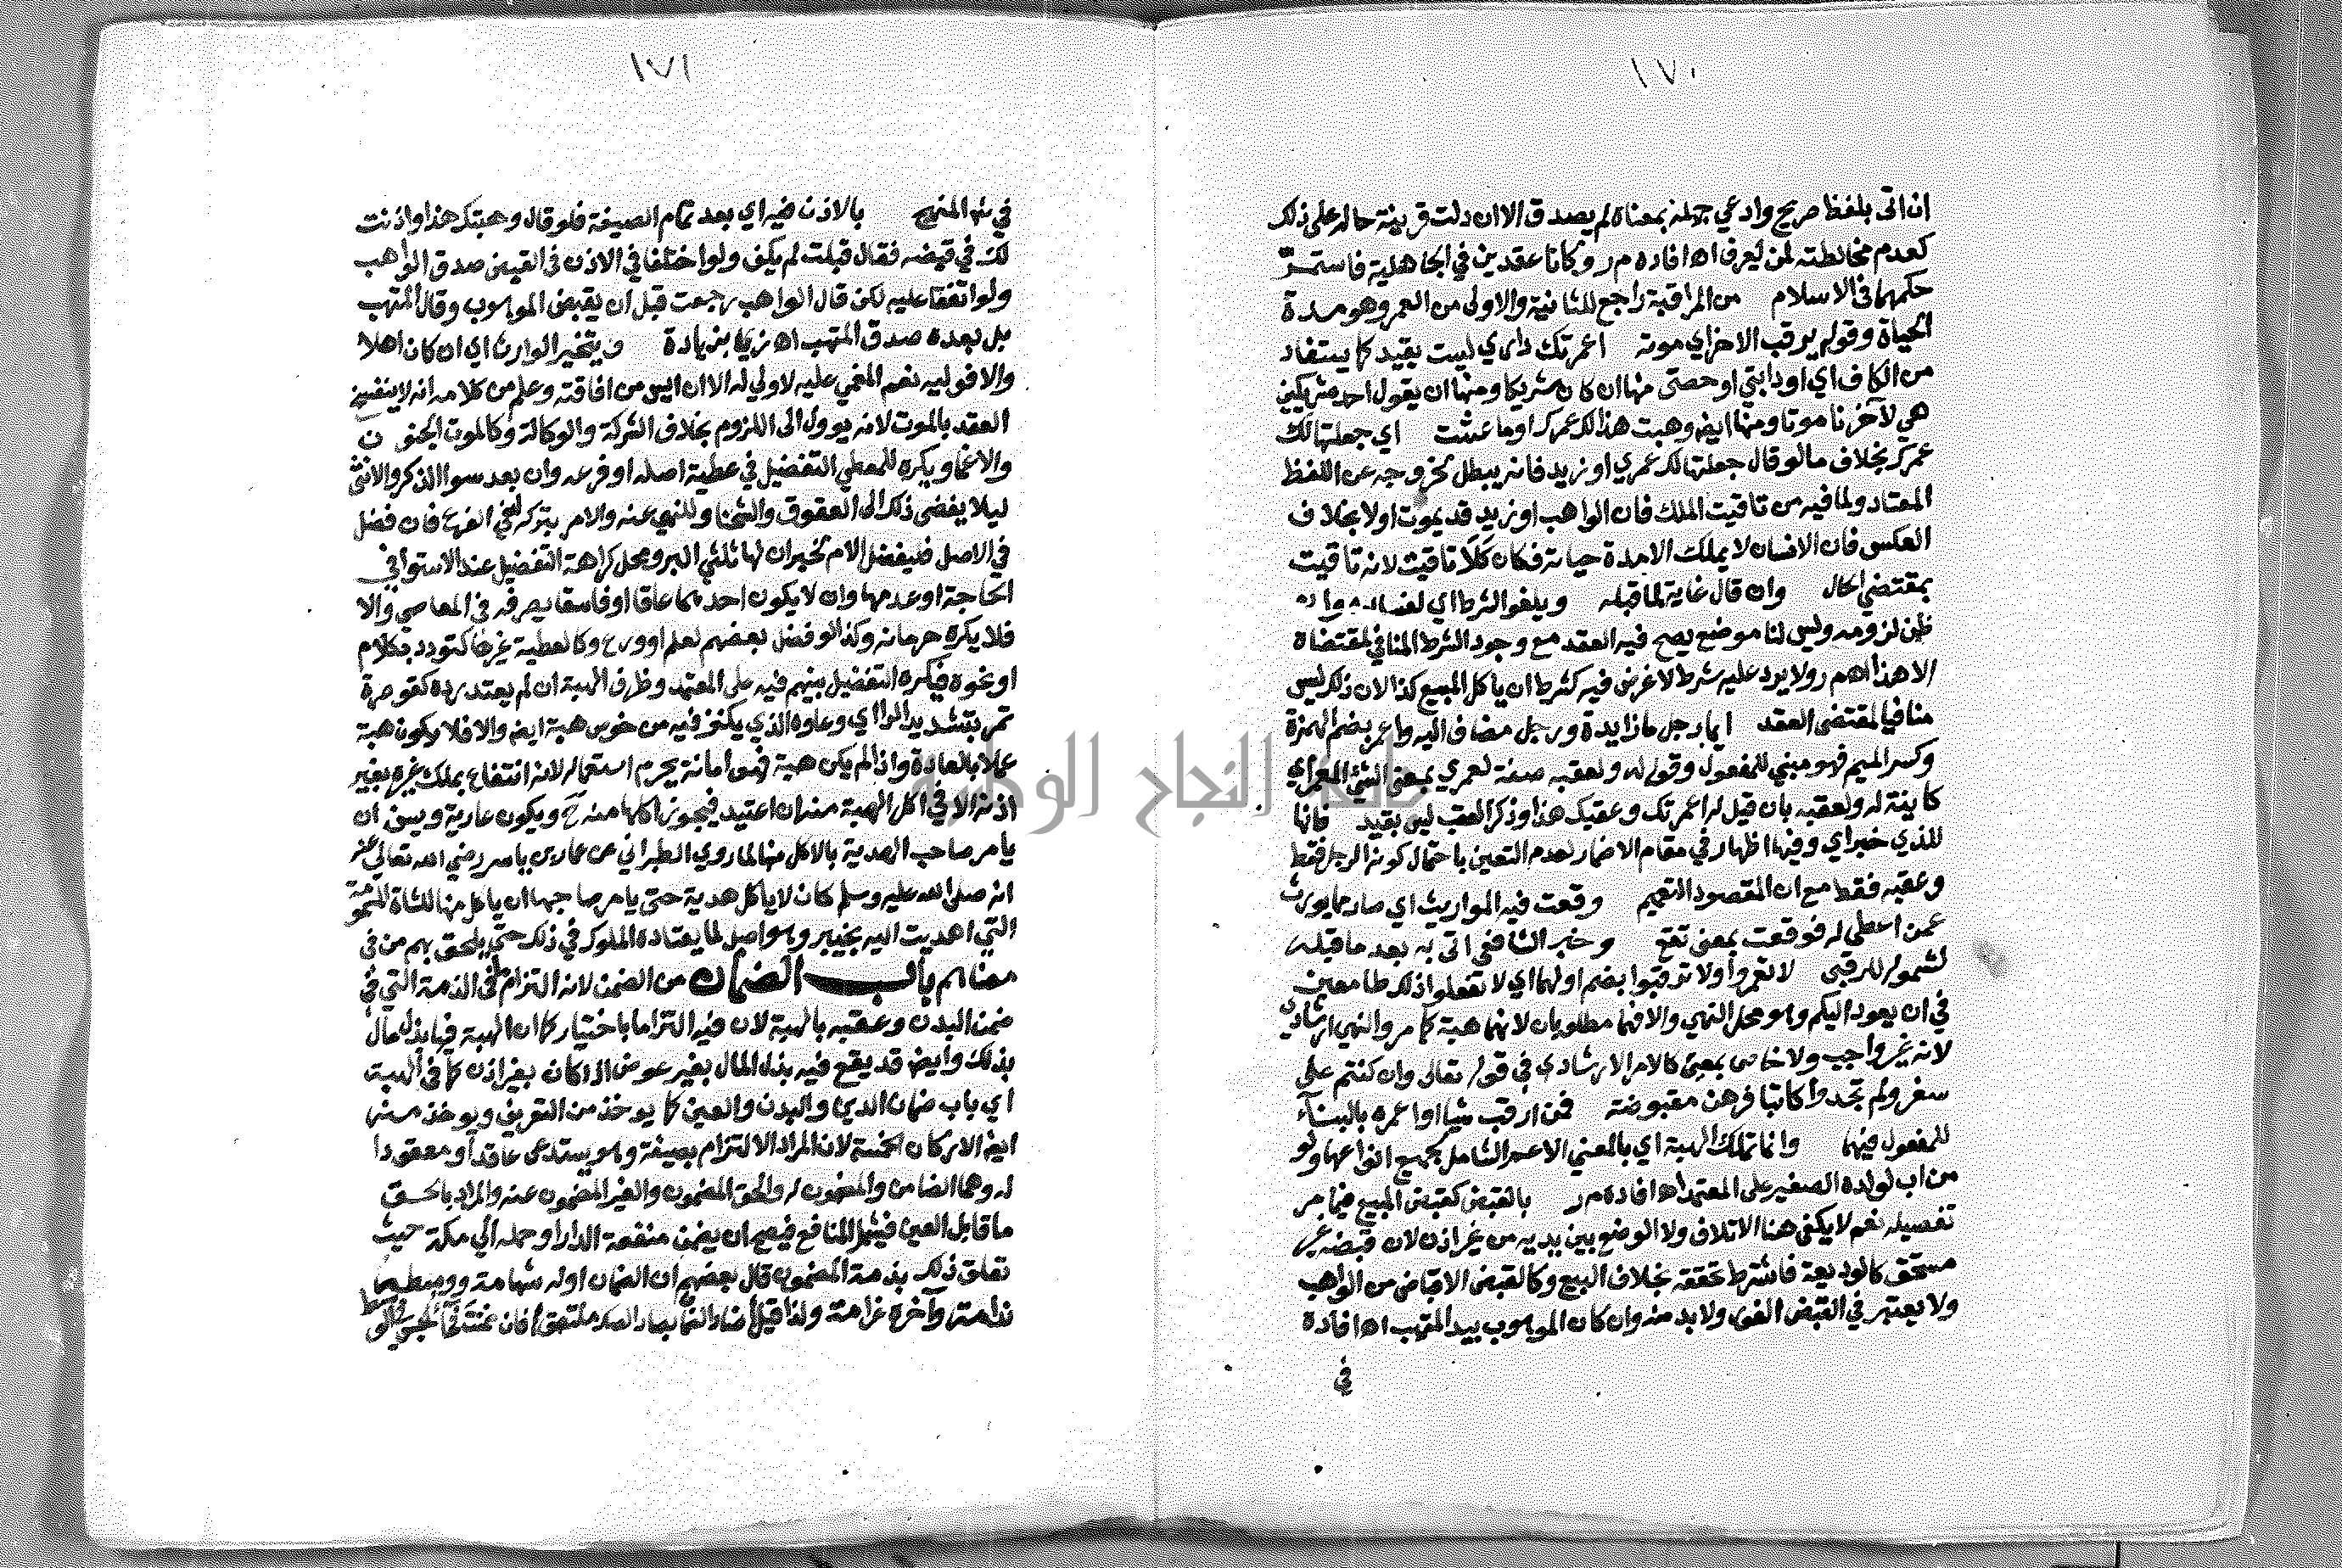 ١٧٠
ان اتى بلفظ صريح وادعي جهله بمعناه لم يصدق الا ان دلت قرينة حاله على ذلك
كعدم مخالطته لمن يعرف اه افاده م ر وكانا عقدين في الجاهلية فاستمر
حكمهما في الاسلام من المراقبة راجع للثانية والاولى من العمر وهو مدة
الحياة وقوله يرقب الاخر اي موته اعمرتك داري ليست بقيد كما يستفاد
من الكاف اي او دابتي او حصتى منها ان كان شريكا ومنها ان يقول احد شريكين
هي لآخرنا موتا ومنها ايض وهبت هذا لك عمرك او ما عشت اي جعلتها لك
عمرك بخلاف ما لو قال جعلتها لك عمري او زيد فانه يبطل لخروجه عن اللفظ
المعتاد ولما فيه من تاقيت الملك فان الواهب او زيد قد يموت اولا بخلاف
العكس فان الانسان لا يملك الا مدة حياته فكان كلا تاقيت لانه تاقيت
بمقتضى الحال وان قال غاية لما قبله ويلغو الشرط اي لفساده وان
ظن لزومه وليس لنا موضع يصح فيه العقد مع وجود الشرط المنافي لمقتضاه
الا هذا اه م ر ولا يرد عليه شرط لا غرض فيه كشرط ان ياكل المبيع كذا لان ذلك ليس
منافيا لمقتضى العقد ايما رجل ما زايدة ورجل مضاف اليه واعمر بضم الهمزة
وكسر الميم فهو مبني للمفعول وقوله له ولعقبه صفة لعمري بمعنى الشئ المعمر اي
كاينة له ولعقبه بان قيل له اعمرتك وعقبك هذا وذكر العقب ليس بقيد فانها
للذي خبر اي وفيها اظهار في مقام الاضمار لعدم التعين باحتمال كونه الرجل فقط
وعقبه فقط مع ان المقصود التعميم وقعت فيه المواريث اي صار مما يورث
عمن اعطي له فوقعت بمعنى تقع وخبر الشافعي اتى به بعد ما قبله
لشموله للرقبى لا تعمروا ولا ترقبوا بضم اولهما اي لا تفعلوا ذلك طامعين
في ان يعود اليكم وهو محل النهي والا فهما مطلوبان لانهما هبة كما مر والنهي ارشادي
لانه غير واجب ولا خاص بمعين كالامر الارشادي في قوله تعالى وان كنتم على
سفر ولم تجدوا كاتبا فرهن مقبوضة فمن ارقب شيا او اعمره بالبناء
للمفعول فيهما وانما تملك الهبة اي بالمعني الاعم الشامل لجميع انواعها ولو
من اب لولده الصغير على المعتمد اه افاده م ر بالقبض كقبض المبيع فيما مر
تفصيله نعم لا يكفي هنا الاتلاف ولا الوضع بين يديه من غير اذن لان قبضه غير
مستحق كالوديعة فاشترط تحققه بخلاف البيع وكالقبض الاقباض من الواهب
ولا يعتبر في القبض الفور ولا بد منه وان كان الموهوب بيد المتهب اه افاده
في
١٧١
في شه المنهج بالاذن فيه اي بعد تمام الصيغة فلو قال وهبتك هذا واذنت
لك في قبضه فقال قبلت لم يكف ولو اختلفا في الاذن في القبض صدق الواهب
ولو اتفقا عليه لكن قال الواهب رجعت قبل ان يقبض الموهوب وقال المتهب
بل بعده صدق المتهب اه زي بزيادة ويتخير الوارث اي ان كان اهلا
والا فوليه نعم المغمي عليه لا ولي له الا ان ايس من افاقته وعلم من كلامه انه لا ينفسخ
العقد بالموت لانه يوول الى اللزوم بخلاف الشركة والوكالة وكالموت الجنون
والاغما ويكره للمعطي التفضيل في عطية اصله او فرعه وان بعد سوا الذكر والانثى
ليلا يفضى ذلك الى العقوق والشحنا وللنهي عنه والامر بتركه في الفرع فان فضل
في الاصل فليفضل الام لخبر ان لها ثلثي البر ومحل كراهة التفضيل عند الاستوا في
الحاجة او عدمها وان لا يكون احدهما عاقا او فاسقا يصرفه في المعاصي والا
فلا يكره حرمانه وكذا لو فضل بعضهم لعلم او ورع وكالعطية غيرها كتودد بكلام
او نحوه فيكره التفضيل بينهم فيه على المعتمد وظرف الهبة ان لم يعتد رده كقوصرة
تمر بتشديد الرا اي وعاوه الذي يكنز فيه من خوص هبة ايض والا فلا يكون هبة
عملا بالعادة واذا لم يكن هبة فهو امانة يحرم استعماله لانه انتفاع بملك غيره بغير
اذنه الا في اكل الهبة منه ان اعتيد فيجوز اكلها منه ح ويكون عارية ويسن ان
يامر صاحب الهدية بالاكل منها لما روي الطبراني عن عمار بن ياسر رضي الله تعالى عنه
انه صلى الله عليه وسلم كان لا ياكل هدية حتى يامر صاحبها ان ياكل منها للشاة المسمومة
التي اهديت اليه بخيبر وهو اصل لما يعتاده الملوك في ذلك حتى يلحق بهم من في
معناهم باب الضمان من الضمن لانه التزام ما في الذمة التي في
ضمن البدن وعقبه بالهبة لان فيه التزاما باختيار كما ان الهبة فيها بذل مال
بذلك وايض قد يقع فيه بذل المال بغير عوض اذا كان بغير اذن كما في الهبة
اي باب ضمان الدين والبدن والعين كما يوخذ من التعريف ويوخذ منه
ايض الاركان الخمسة لان المراد الالتزام بصيغة وهو يستدعى عاقدا ومعقودا
له وهما الضامن والمضمون له والحق المضمون والغير المضمون عنه والمراد بالحق
ما قابل العين فيشمل المنافع فيصح ان يضمن منفعة الدار او حمله الي مكة حيث
تعلق ذلك بذمة المضمون قال بعضهم ان الضمان اوله شهامة ووسطه
ندامة وآخره غرامة ولذا قيل